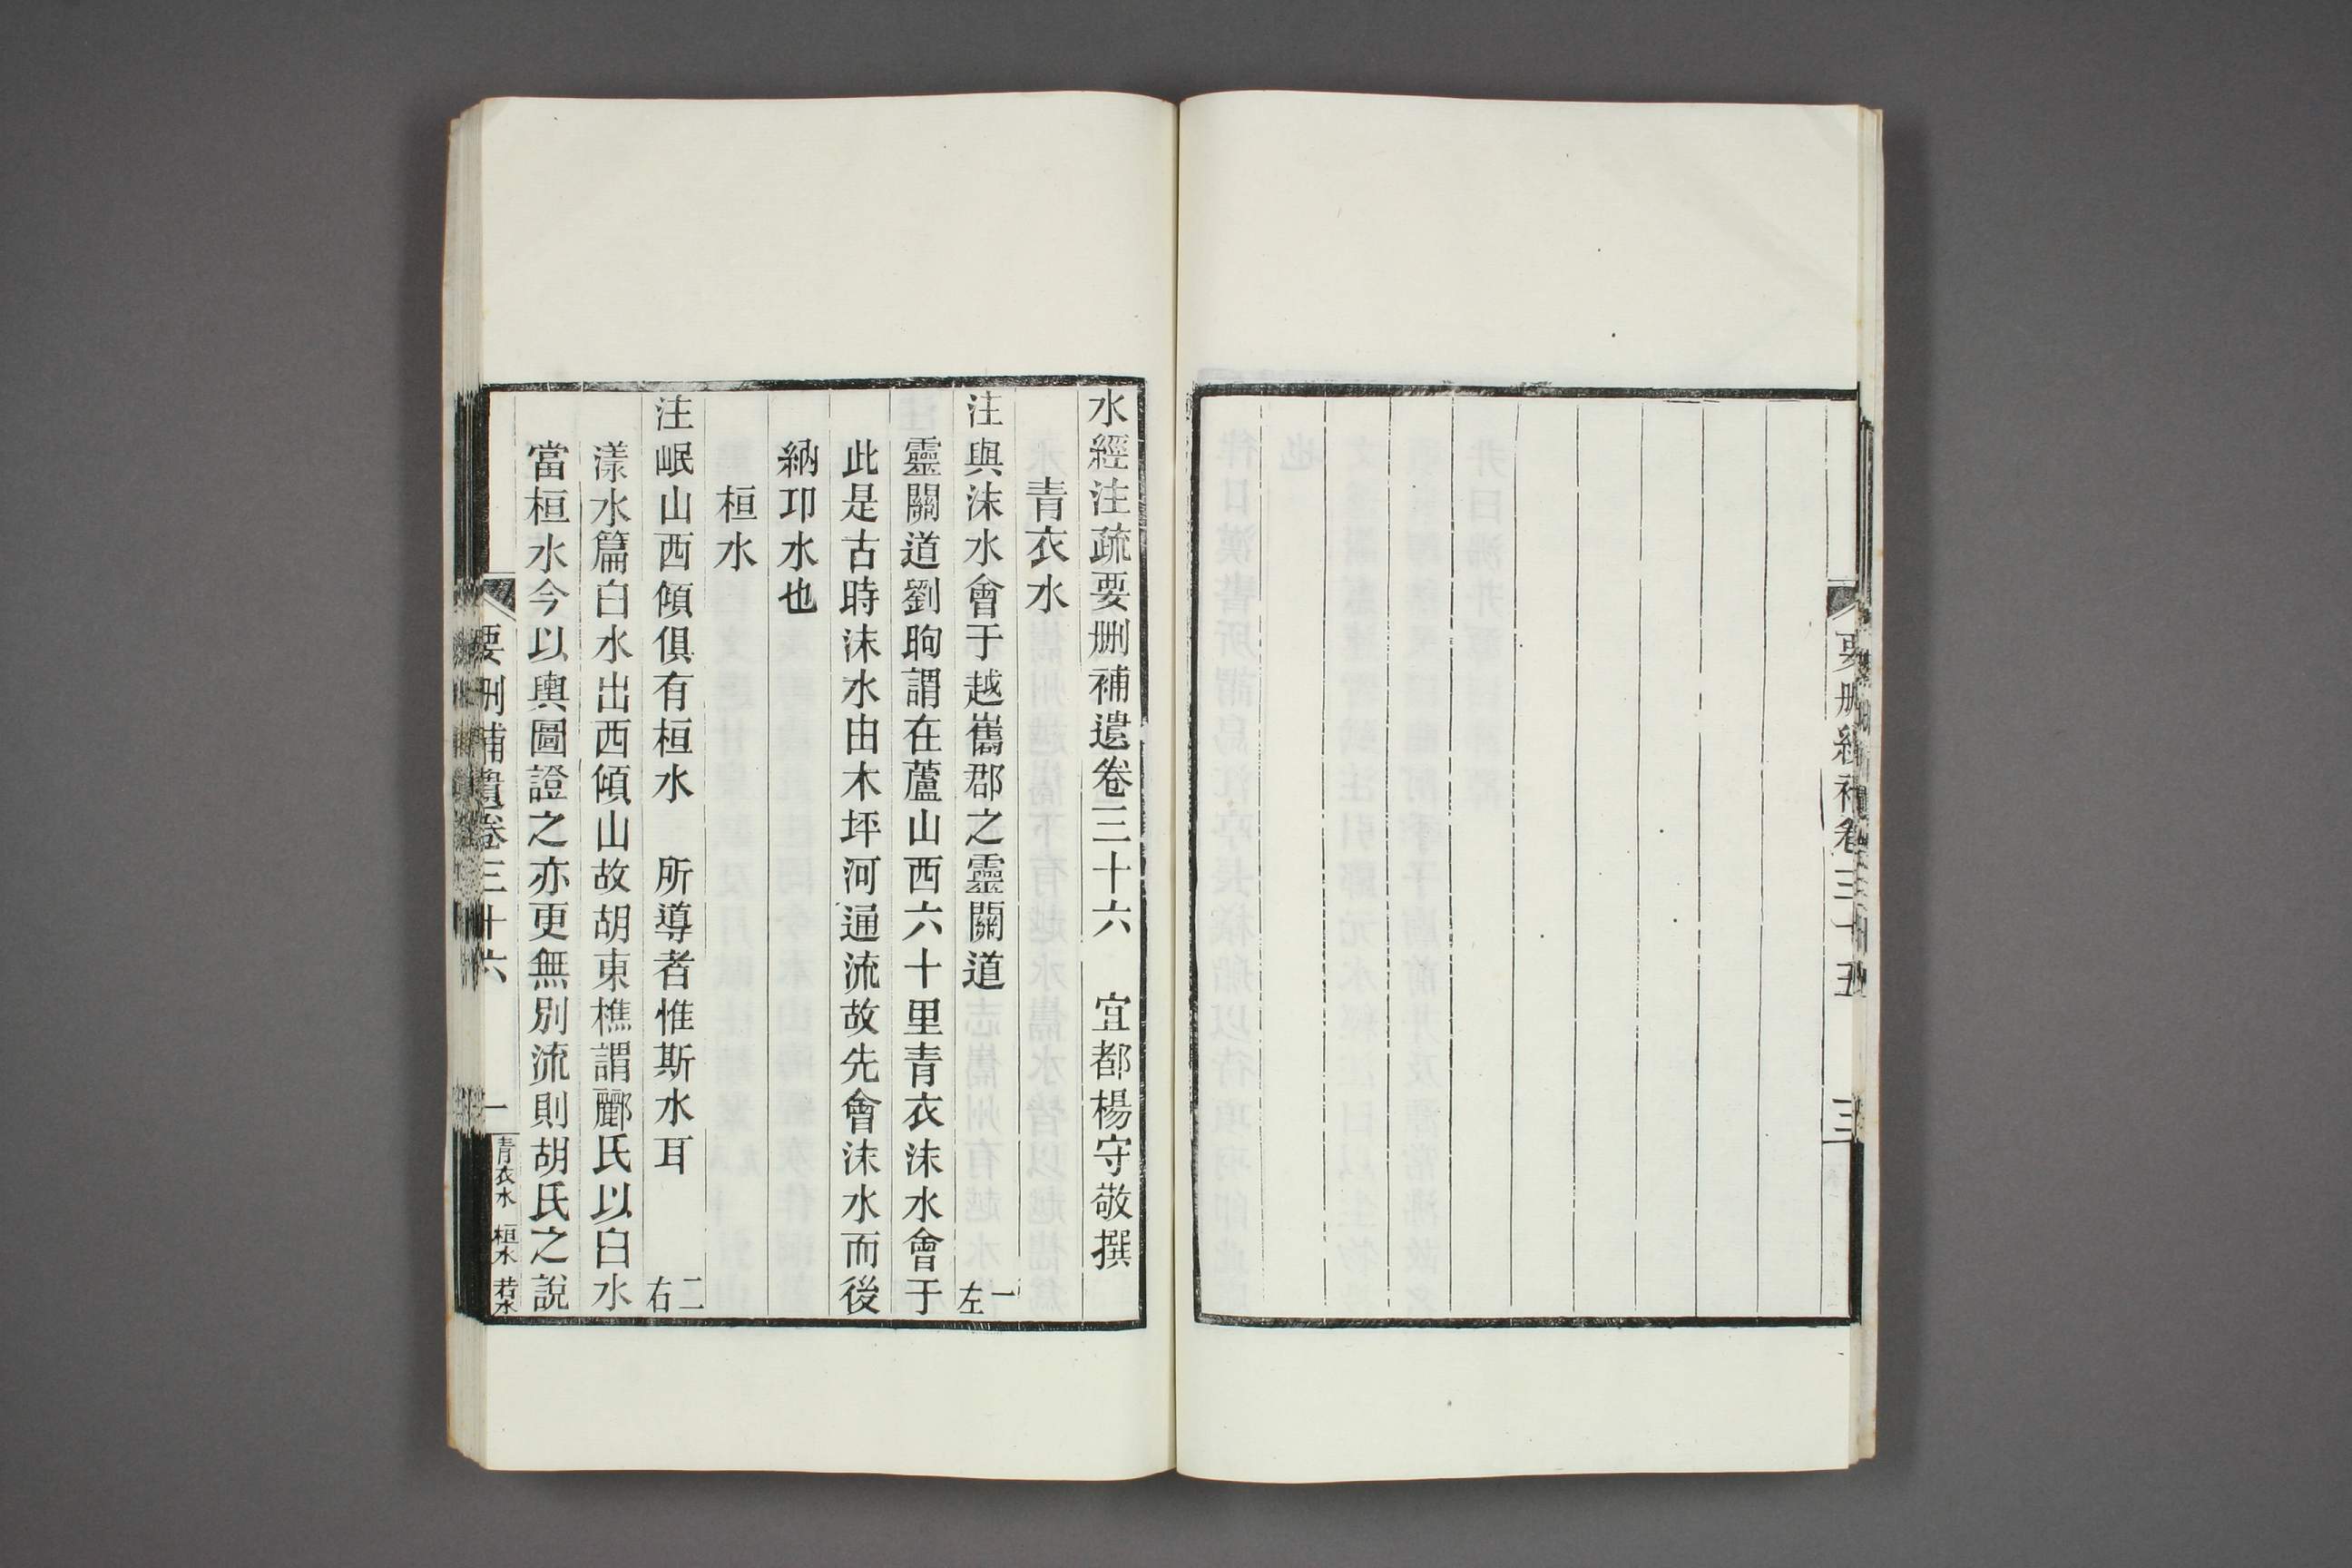 水經注疏要刪補遺卷三十六　宜都楊守敬撰
青衣水
注與沫水會于越巂郡之靈關道　一左
靈關道劉昫謂在蘆山西六十里青衣沫水會于
此是古時沫水由木坪河通流故先會沫水而後
納卭水也
桓水
注岷山西傾俱有桓水　所導者惟斯水耳　二右
漾水篇白水出西傾山故胡東樵謂酈氏以白水
當桓水今以輿圖證之亦更無別流則胡氏之說
要刪補遺卷三十六　一　青衣水　桓水　若水